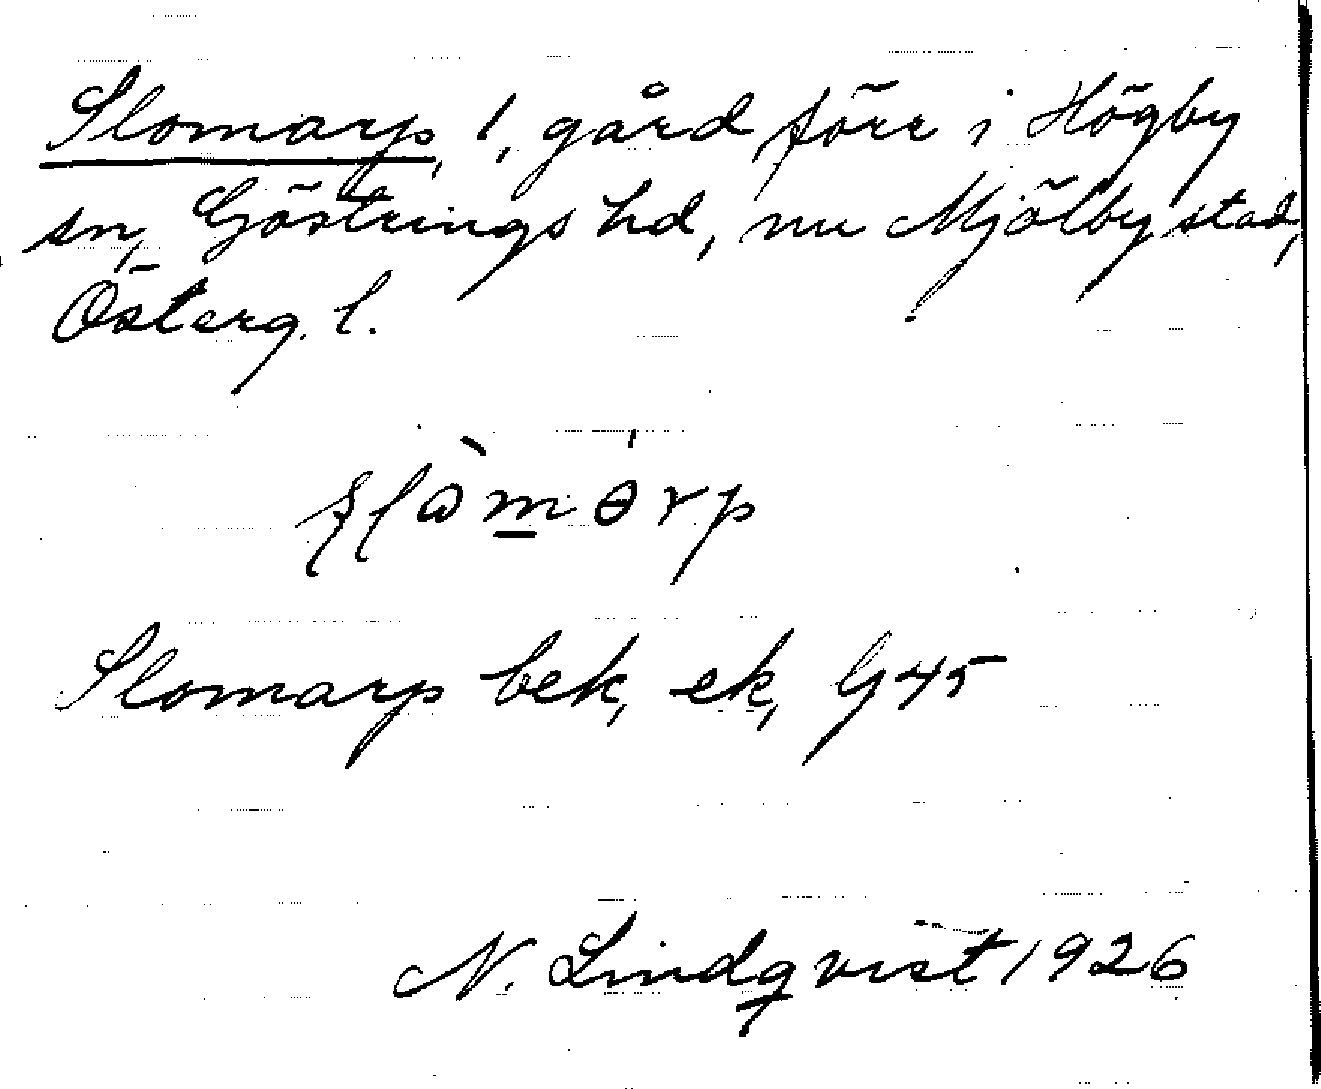 Slomarp, 1, gård, förr i Högby
sn, Göstrings hd, nu Mjölby stad,
Österg. l.
Slomarp bek, ek, G45
N. Lindqvist 1926